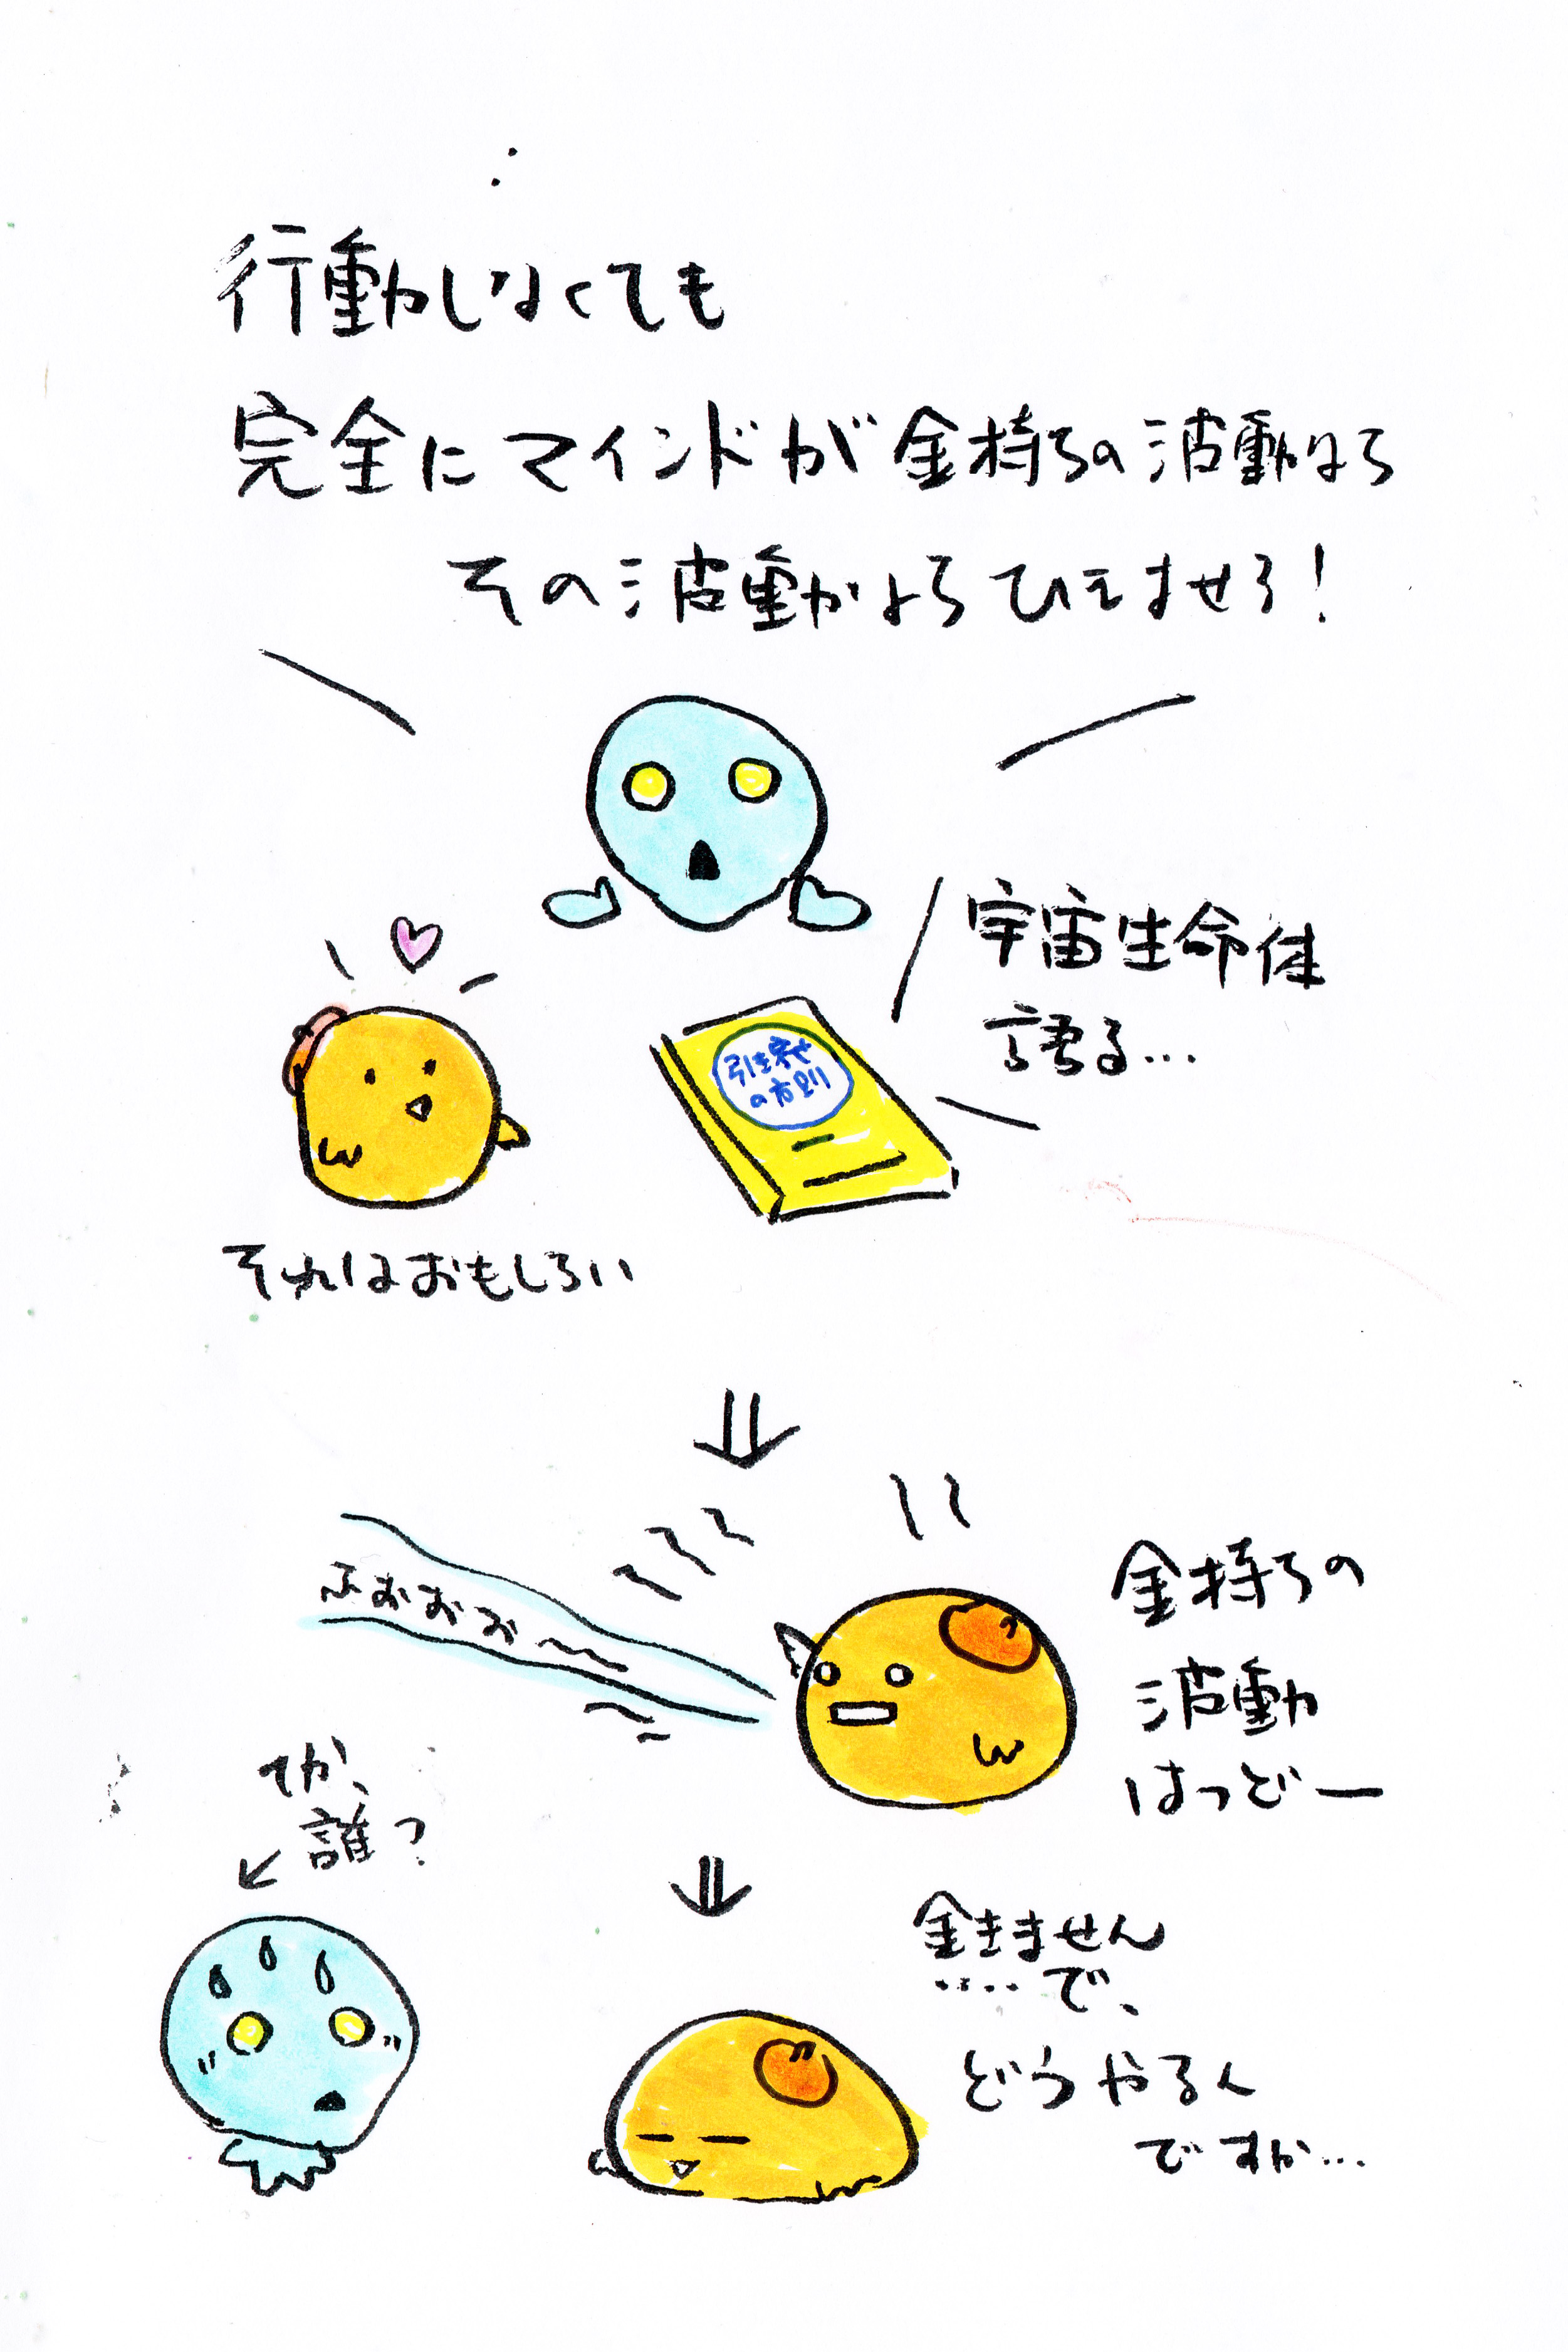 行動しなくても
完全にマインドが金持ちの波動なら
その波動がよろひえませろ!
宇宙生命体
語る…
引き寄せ
の方則
それはおもしろい
ふおおお〜
金持ちの
波動
はつどー
てか、
誰?
金きません
‥‥で、
どうやるん
ですか…